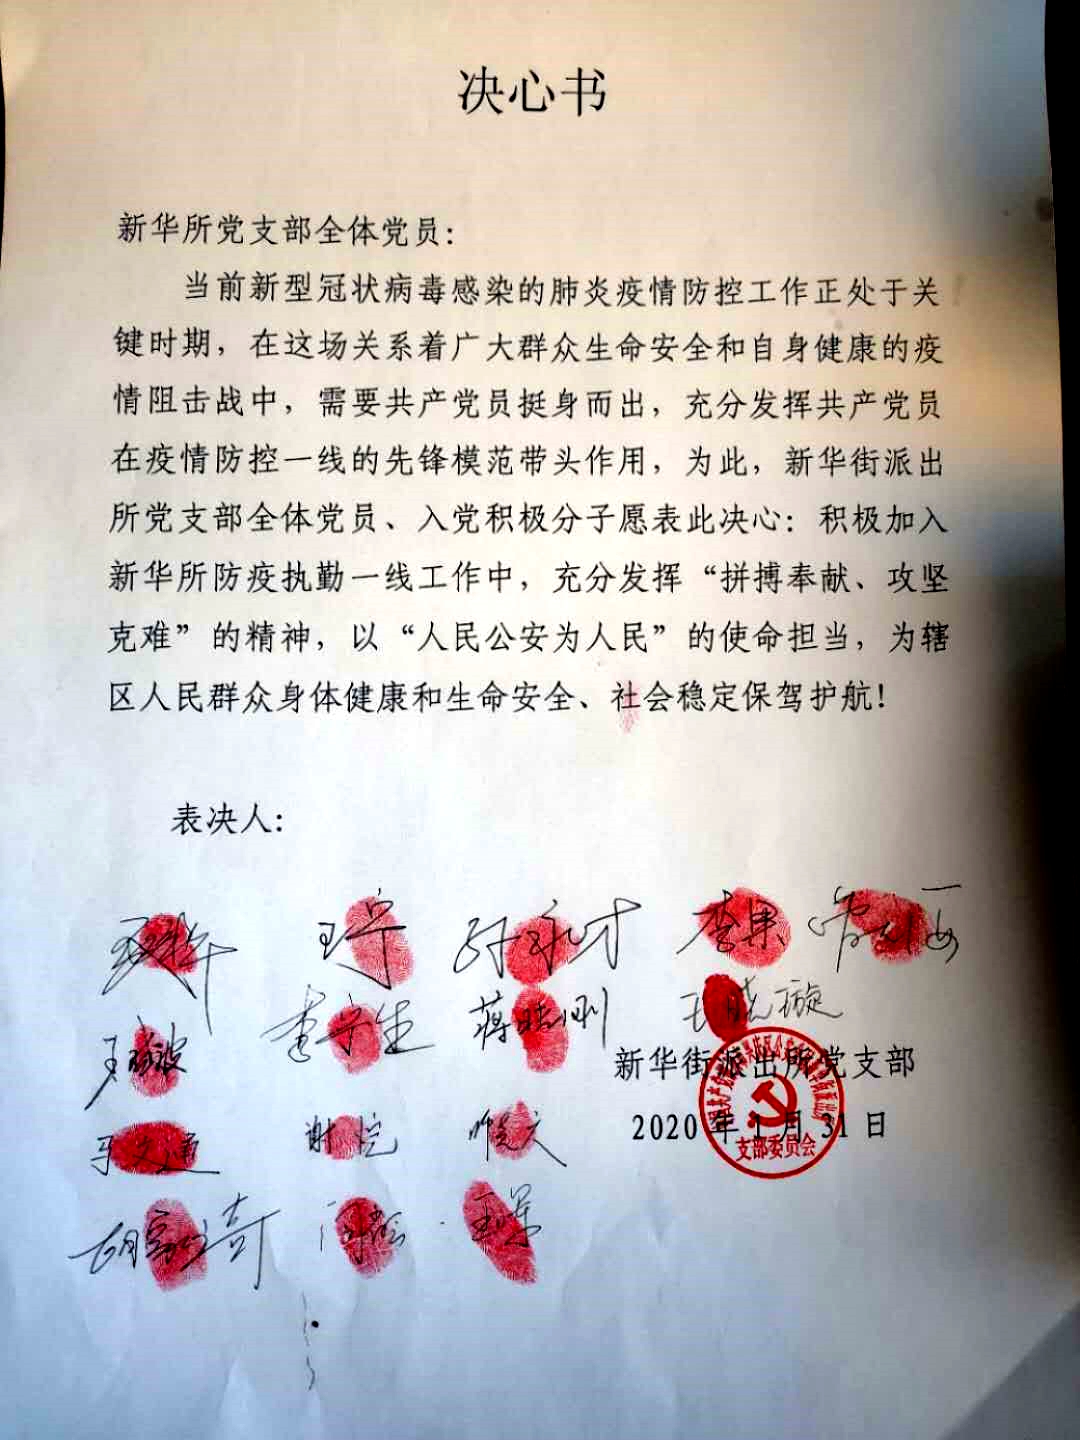 决心书
新华所党支部全体党员：
当前新型冠状病毒感染的肺炎疫情防控工作正处于关
键时期，在这场关系着广大群众生命安全和自身健康的疫
情阻击战中，需要共产党员挺身而出，充分发挥共产党员
在疫情防控一线的先锋模范带头作用，为此，新华街派出
所党支部全体党员、入党积极分子愿表此决心：积极加入
新华所防疫执勤一线工作中，充分发挥“拼搏奉献、攻坚
克难”的精神，以“人民公安为人民”的使命担当，为辖
区人民群众身体健康和生命安全、社会稳定保驾护航！
表决人：
王宁 孙永才 李果
李宁生 蒋晓刚 王晓璇
新华街派出所党支部
2020年1月31日
支部委员会
马文通